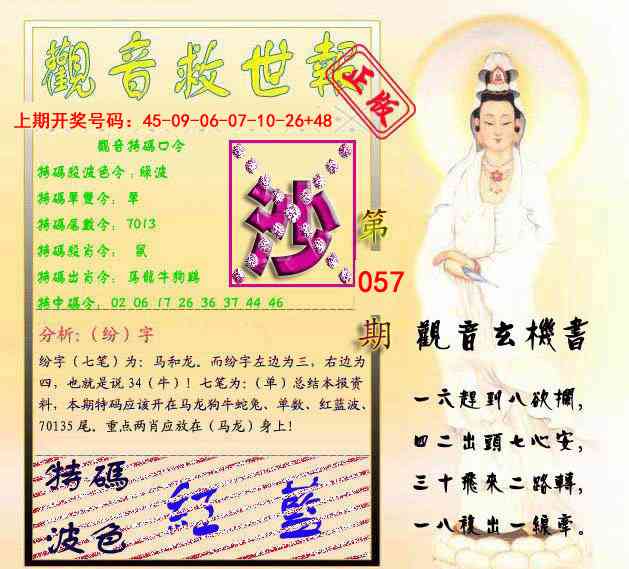 觀音救世報
正版
上期开奖号码：45-09-06-07-10-26+48
觀音特碼口令
特碼殺波色令：綠波
特碼單雙令：單
特碼尾數令：7013
特碼殺肖令：鼠
特碼出肖令：馬龍牛狗鷄
特中碼令：02 06 17 26 36 37 44 46
沙
第
057
期
分析：（纷）字
纷字（七笔）为：马和龙。而纷字左边为三，右边为
四，也就是说34（牛）！七笔为：（单）总结本报资
料，本期特码应该开在马龙狗牛蛇兔、单数、红蓝波、
70135尾。重点两肖应放在（马龙）身上！
特碼
波色
紅 藍
觀音玄機書
一六趕到八欲攔，
四二出頭七心安，
三十飛來二路轉，
一八複出一線牽。